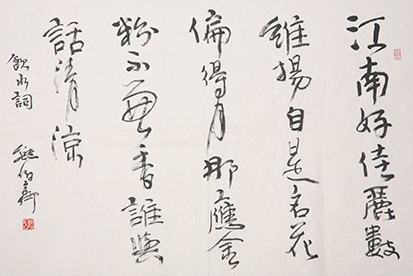 江南好佳麗數
維揚自是名花
偏得月那應金
粉不兼香誰與
話清涼
飲水詞
熊伯齊